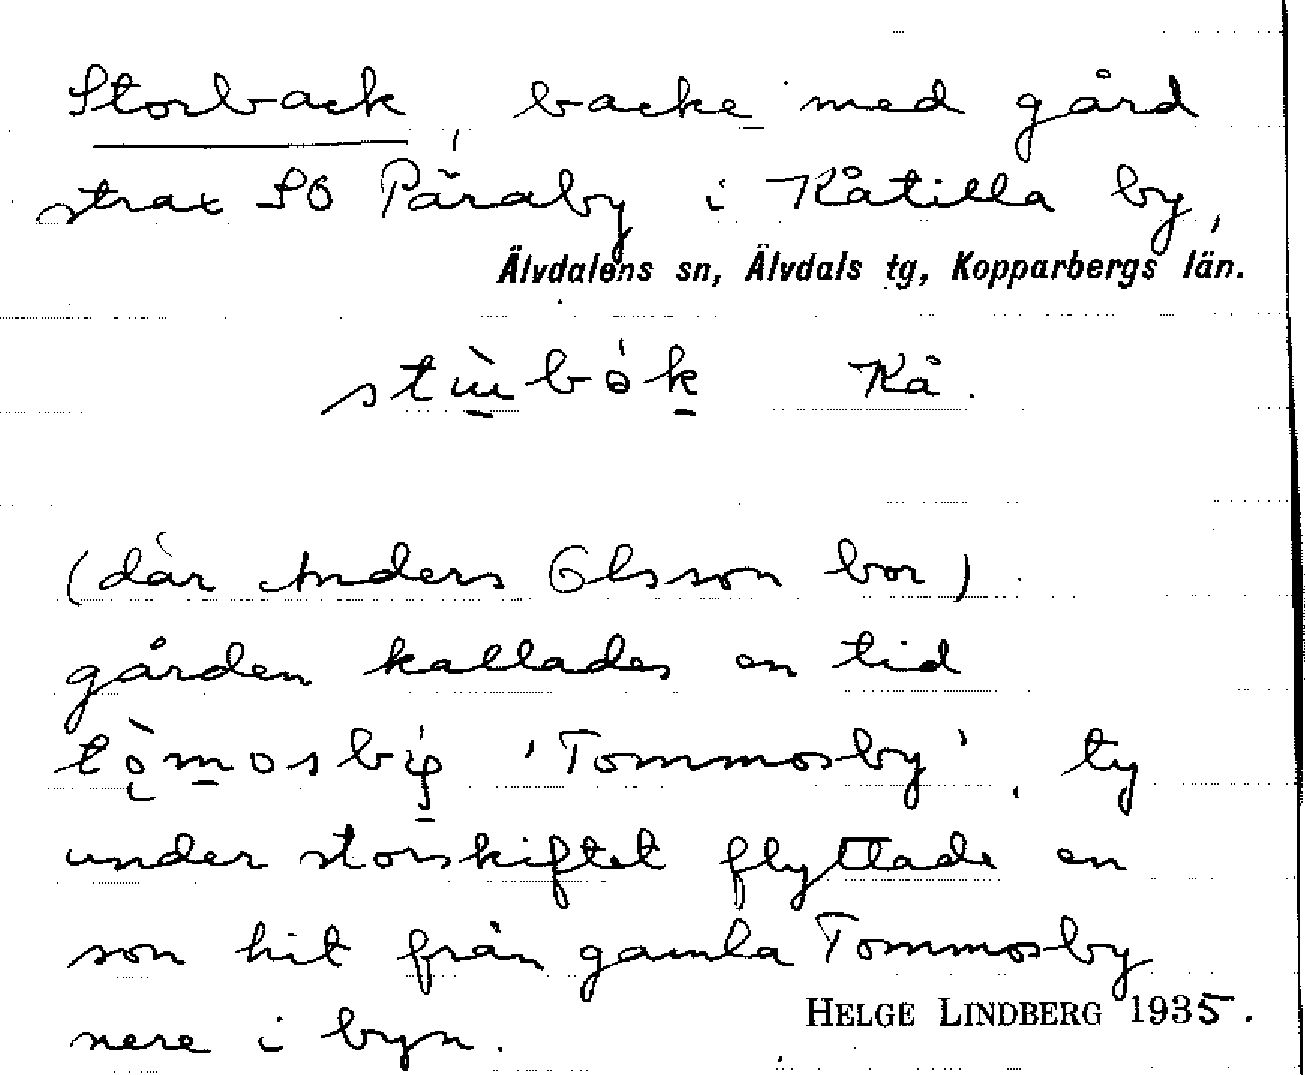 Storback, backe med gård
strax SO Päraby i Kåtilla by,
Älvdalens sn, Älvdals tg, Kopparbergs län.
Kå.
(där Anders Olsson bor)
gården kallades en tid
'Tommosby', ty
under storskiftet flyttade en
son hit från gamla Tommosby
nere i byn.
HELGE LINDBERG 1935.